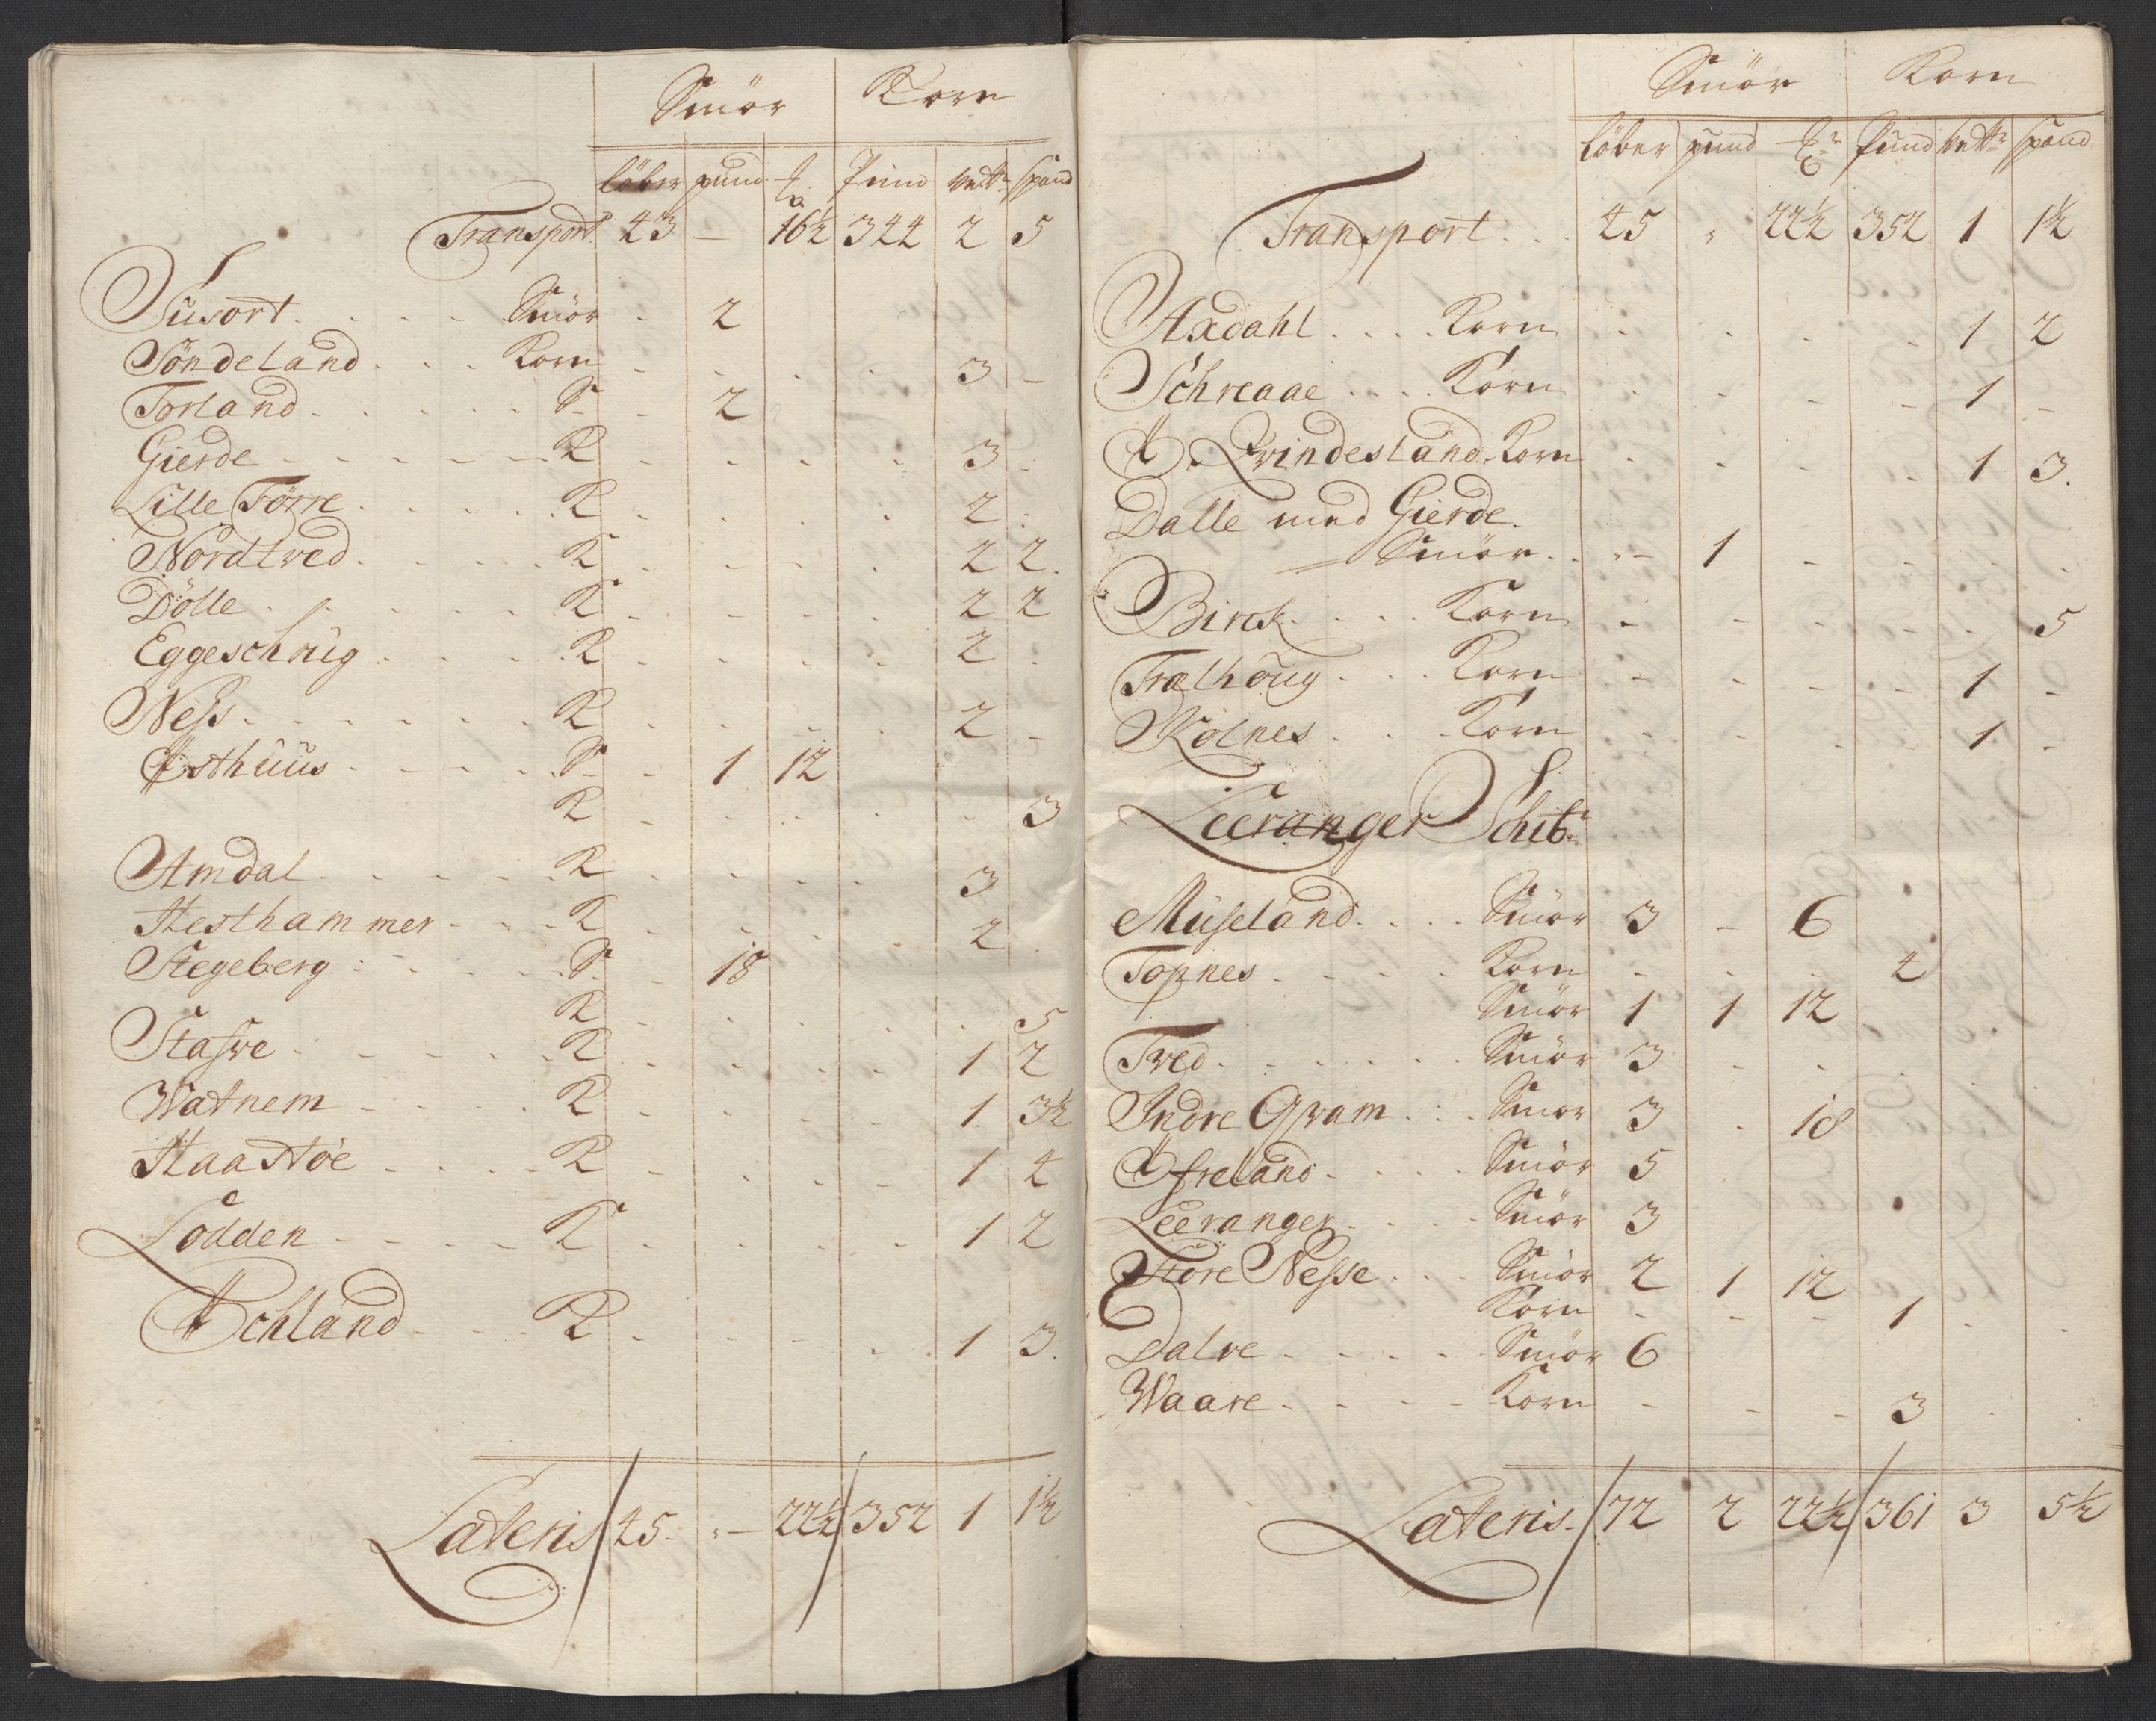 Smör Korn
löber pund Pund spand
Transport. 43 – 16½ 344 2 5
Susort . . . . Smör . 2
Söndeland . . . Korn . . . . 3 –
Torland . . . . . S . 2
Gierde . . . . . K . . . . 3 .
Lille Förre . . . . K . . . . 2 .
Nordtved . . . . K . . . . 2 2.
Dölle . . . . . K . . . . 2 2
Eggeschaug . . . . K . . . . 2 .
Ness . . . . . K . . . . 2 –
Østhuus . . . . . S . 1 12
K . . . . . 3
Amdal . . . . . K . . . . 3
Hesthammer . . . K . . . . 2
Stegeberg : . . . S . 18
K . . . . . 5
Stasve . . . . . K . . . . 1 2
Watnem . . . . K . . . . 1. 3½
Haastöe . . . . K . . . . 1 4
Lodden . . . . K . . . . 1 2
Øchland . . . K . . . . 1 3.
Lateris 45. – 22½ 352 1 1½
Smör Korn
löber pund pund spand
Transport . . 45 " 22½ 352 1 1½
Axdahl . . . . Korn . . . . 1 2
Schreaae . . . . Korn . . . . 1 –
Qvindesland . Korn . . . . 1 3.
Dalle med Gierde.
Smör . . – 1 . . . .
Birck . . . . Korn . . . . . 5
Trælhoug . . . Korn . . . . 1 –
Kolnes . . . Korn . . . . 1 –
Leeranger Schibr
Museland . . . . Smör 3 – 6
Topnes . . . . Korn . . . 4
Smör 1 1 12
Tved . . . . . . Smör 3 . . . . .
Indre Qvam . : . Smör 3 . 18
Øfreland . . . . Smör 5
Leeranger . . . . Smör 3
Store Nesse . . . Smör 2 1 12
Korn . . . 1 . .
Dalve . . . . Smör 6
Waare . . . . Korn . . . 3 . .
Lateris. 72 2 22½ 361 3 5½